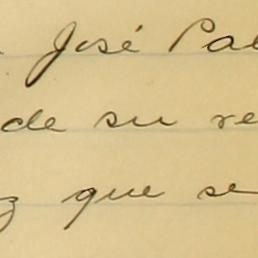 José Pal
de su re
z que se